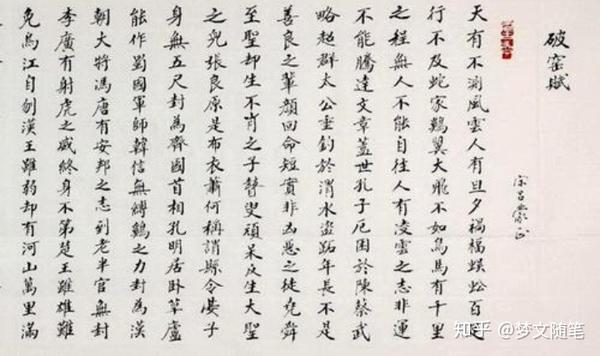 破窑賦
宋呂蒙正
天有不測風雲人有旦夕禍福蜈蚣百足
行不及蛇家鷄翼大飛不如鳥馬有千里
之程無人不能自往人有凌雲之志非運
不能騰達文章蓋世孔子厄困於陳蔡武
略超群太公垂釣於渭水盜跖年長不是
善良之輩顏回命短實非凶惡之徒堯舜
至聖却生不肖之子瞽叟頑呆反生大聖
之兒張良原是布衣蕭何稱謂縣令晏子
身無五尺封為齊國首相孔明居卧草廬
能作蜀國軍師韓信無縛鷄之力封為漢
朝大將馮唐有安邦之志到老半官無封
李廣有射虎之威終身不第楚王雖雄難
免烏江自刎漢王雖弱却有河山萬里滿
知乎 @梦文随笔